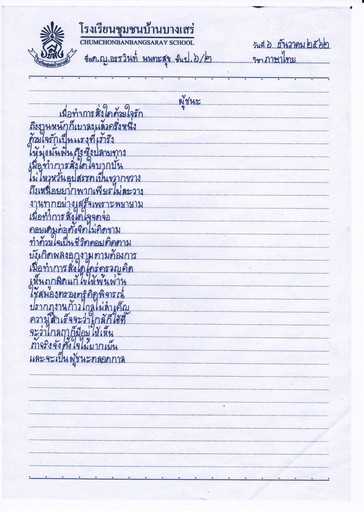 โรงเรียนชุมชนบ้านบางเสร่
CHUMCHONBANBANGSARAY SCHOOL
วันที่ ๖ ธันวาคม ๒๕๖๒
ชื่อ ด.ญ.อรวินท์ นนทะสุข ชั้น ป.๖/๒ วิชา ภาษาไทย
ผู้ชนะ
เมื่อทำการสิ่งใดด้วยใจรัก
ถึงงานหนักก็เบาลงแล้วครึ่งหนึ่ง
ด้วยใจรักเป็นแรงที่เร้ารึง
ให้มุ่งมั่นฝันถึงซึ่งปลายทาง
เมื่อทำการสิ่งใดใจบากบั่น
ไม่ไหวหวั่นอุปสรรคเป็นขวากขวาง
ถึงเหนื่อยยากพากเพียรไม่ละวาง
งานทุกอย่างเสร็จเพราะพยายาม
เมื่อทำการสิ่งใดใจจดจ่อ
คอยเติมต่อตั้งจิตไม่คิดขาม
ทำด้วยใจเป็นชีวิตคอยติดตาม
บังเกิดผลงอกงามตามต้องการ
เมื่อทำการสิ่งใดใคร่ครวญคิด
เห็นถูกผิดแก้ไขให้พ้นผ่าน
ใช้สมองตรองตริคิดพิจารณ์
ปรากฏงานก้าวไกลไม่ลำเค็ญ
ความสำเร็จจะว่าใกล้ก็ใช่ที่
จะว่าไกลฤๅก็มีอยู่ให้เห็น
ถ้าจริงจังตั้งใจไม่ยากเย็น
และจะเป็นผู้ชนะตลอดกาล